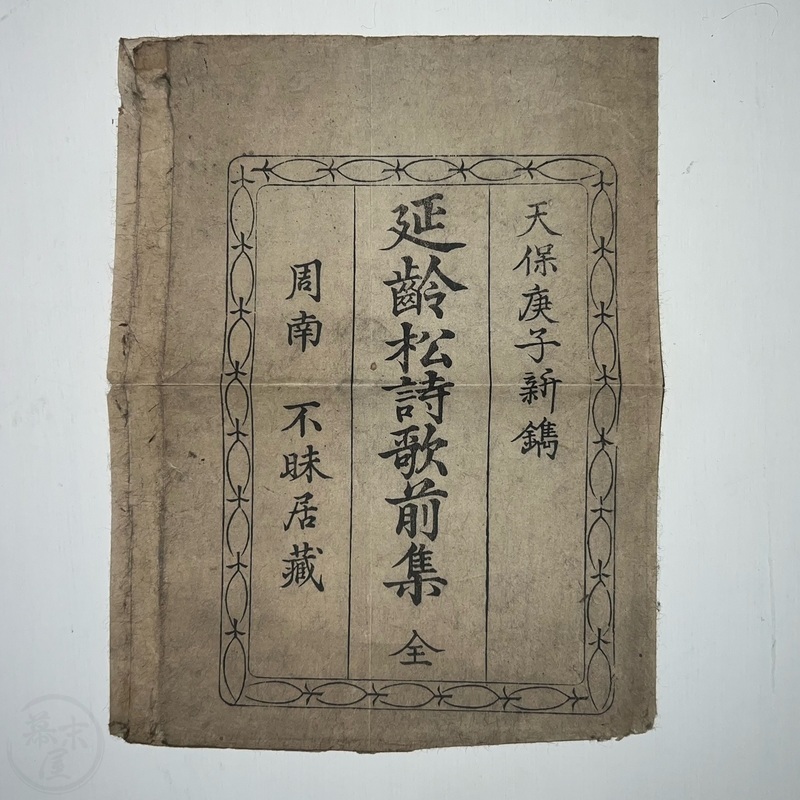 天保庚子新鐫
延齡松詩歌前集 全
周南 不昧居藏
幕末屋